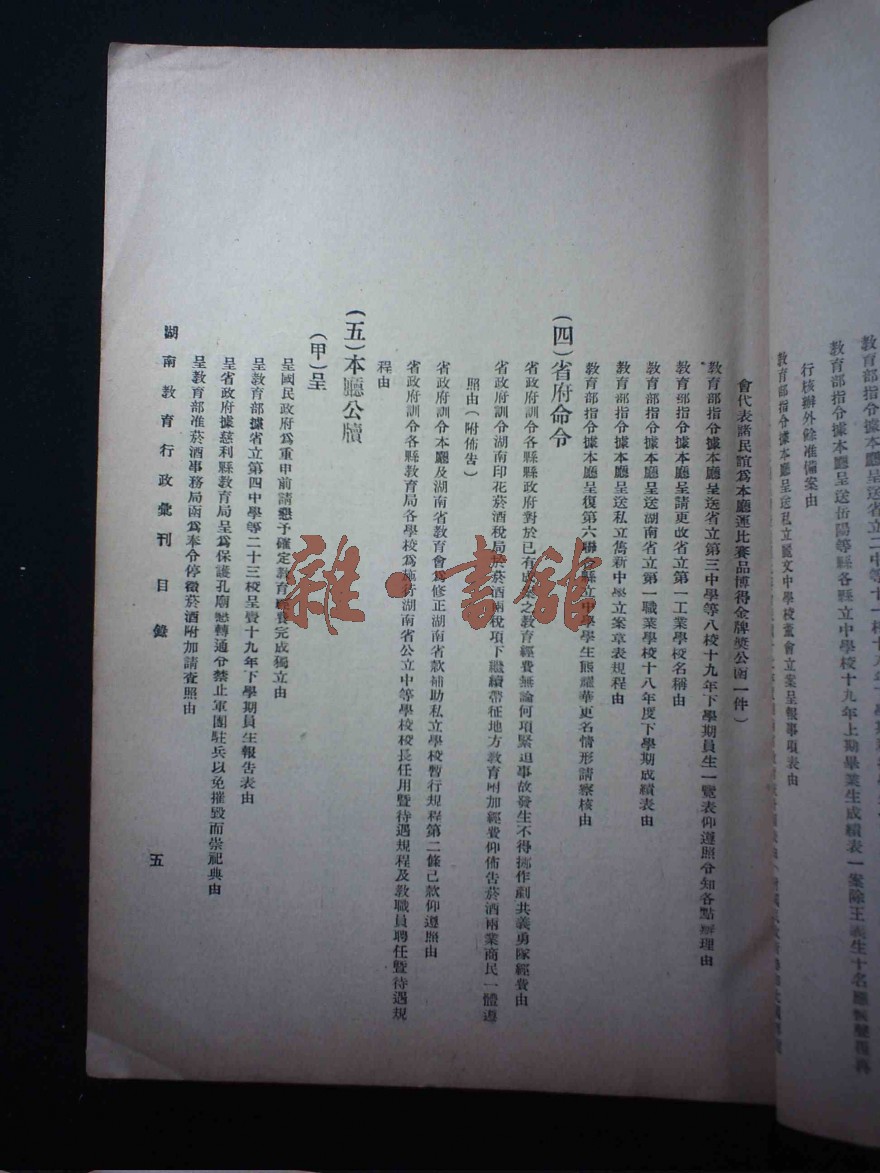 教育部指令據本廳呈送岳陽等縣各縣立中學校十九年上期畢業生成績表一案除王義生十名
行核辦外餘准備案由
教育部指令據本廳呈送私立麗文中學校董會立案呈報事項表由
會代表諸民誼爲本廳運比賽品博得金牌獎公函一件)
教育部指令據本廳呈送省立第三中學等八校十九年下學期員生一覽表仰遵照令知各點辦理由
教育部指令據本廳呈請更改省立第一工業學校名稱由
教育部指令據本廳呈送湖南省立第一職業學校十八年度下學期成績表由
教育部指令據本廳呈送私立雋新中學立案章表規程由
教育部指令據本廳呈復第六聯合縣立中學學生熊耀華更名情形請察核由
(四)省府命令
省政府訓令各縣縣政府對於已有之教育經費無論何項緊迫事故發生不得挪作剷共義勇隊經費由
省政府訓令湖南印花菸酒稅局於菸酒兩稅項下繼續帶征地方教育附加經費仰佈告菸酒兩業商民一體遵
照由(附佈告)
省政府訓令本廳及湖南省教育會爲修正湖南省款補助私立學校暫行規程第二條己款仰遵照由
省政府訓令各縣教育局各學校爲施行湖南省公立中等學校校長任用暨待遇規程及教職員聘任暨待遇規
程由
(五)本廳公牘
(甲)呈
呈國民政府爲重申前請懇予確定教育經費完成獨立由
呈教育部據省立第四中學等二十三校呈賫十九年下學期員生報告表由
呈省政府據慈利縣教育局呈爲保護孔廟懇轉通令禁止軍團駐兵以免摧毀而崇祀典由
呈教育部准菸酒事務局函爲奉令停徵菸酒附加請查照由
湖南教育行政彙刊 目錄
五
雜·書館